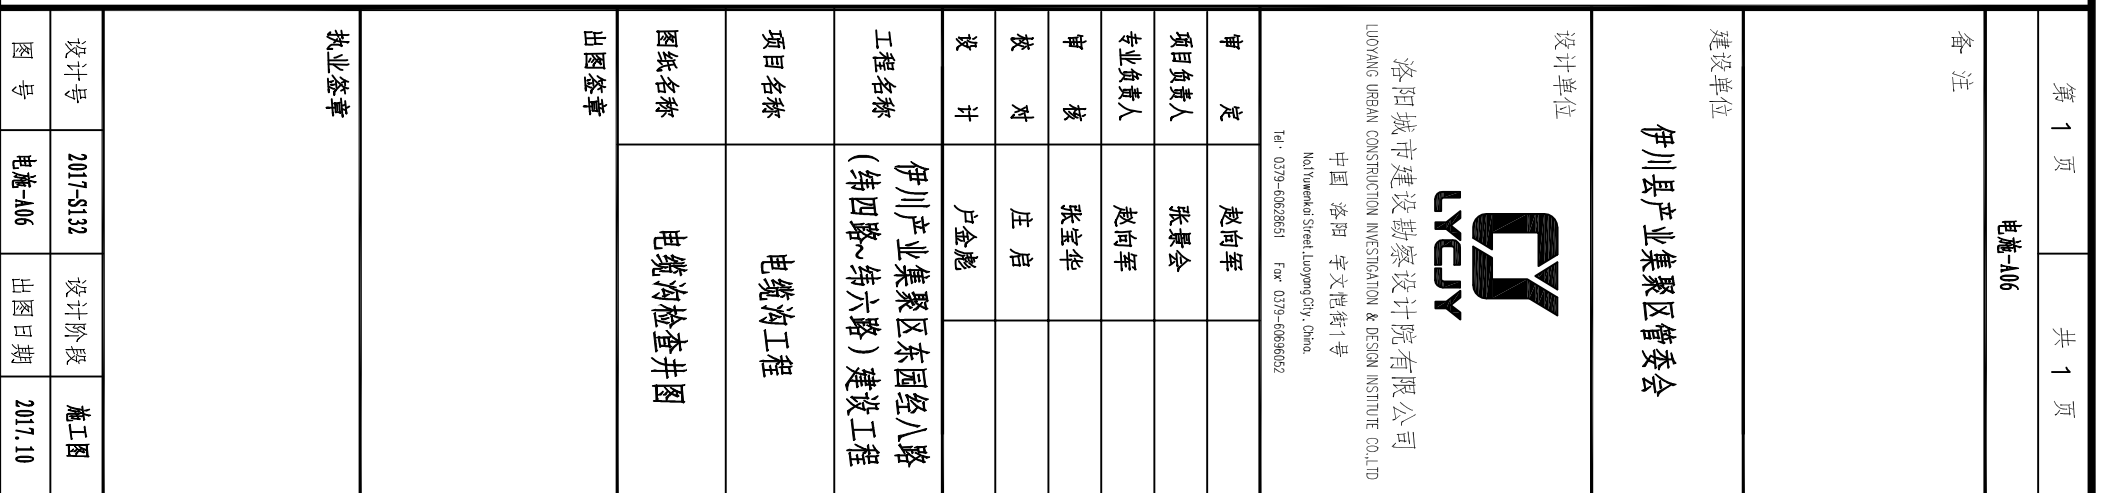 第 1 页 共 1 页
电施-A06
备 注
建设单位
伊川县产业集聚区管委会
设计单位
LYCJY
洛阳城市建设勘察设计院有限公司
LUOYANG URBAN CONSTRUCTION INVESTIGATION & DESIGN INSTITUTE CO.,LTD
中国 洛阳 宇文恺街1号
No.1Yuwenkai Street,Luoyang City, China.
Tel: 0379-60628651 Fax: 0379-60696052
审 定 赵向军
项目负责人 张景会
专业负责人 赵向军
审 核 张宝华
校 对 庄 启
设 计 户金彪
工程名称 伊川产业集聚区东园经八路
(纬四路~纬六路)建设工程
项目名称 电缆沟工程
图纸名称 电缆沟检查井图
出图签章
执业签章
设计号 2017-S132 设计阶段 施工图
图 号 电施-A06 出图日期 2017.10